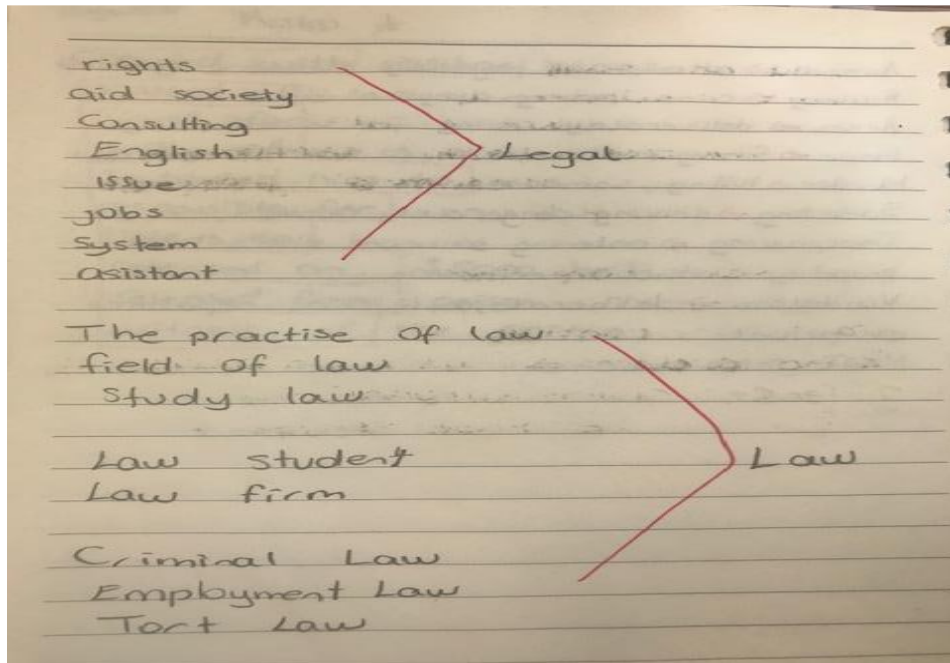 rights
aid society
Consulting
English
Legal
issue
jobs
System
asistant
The practise of law
field of law
Study law
Law student
Law
Law firm
Criminal Law
Employment Law
Tort Law